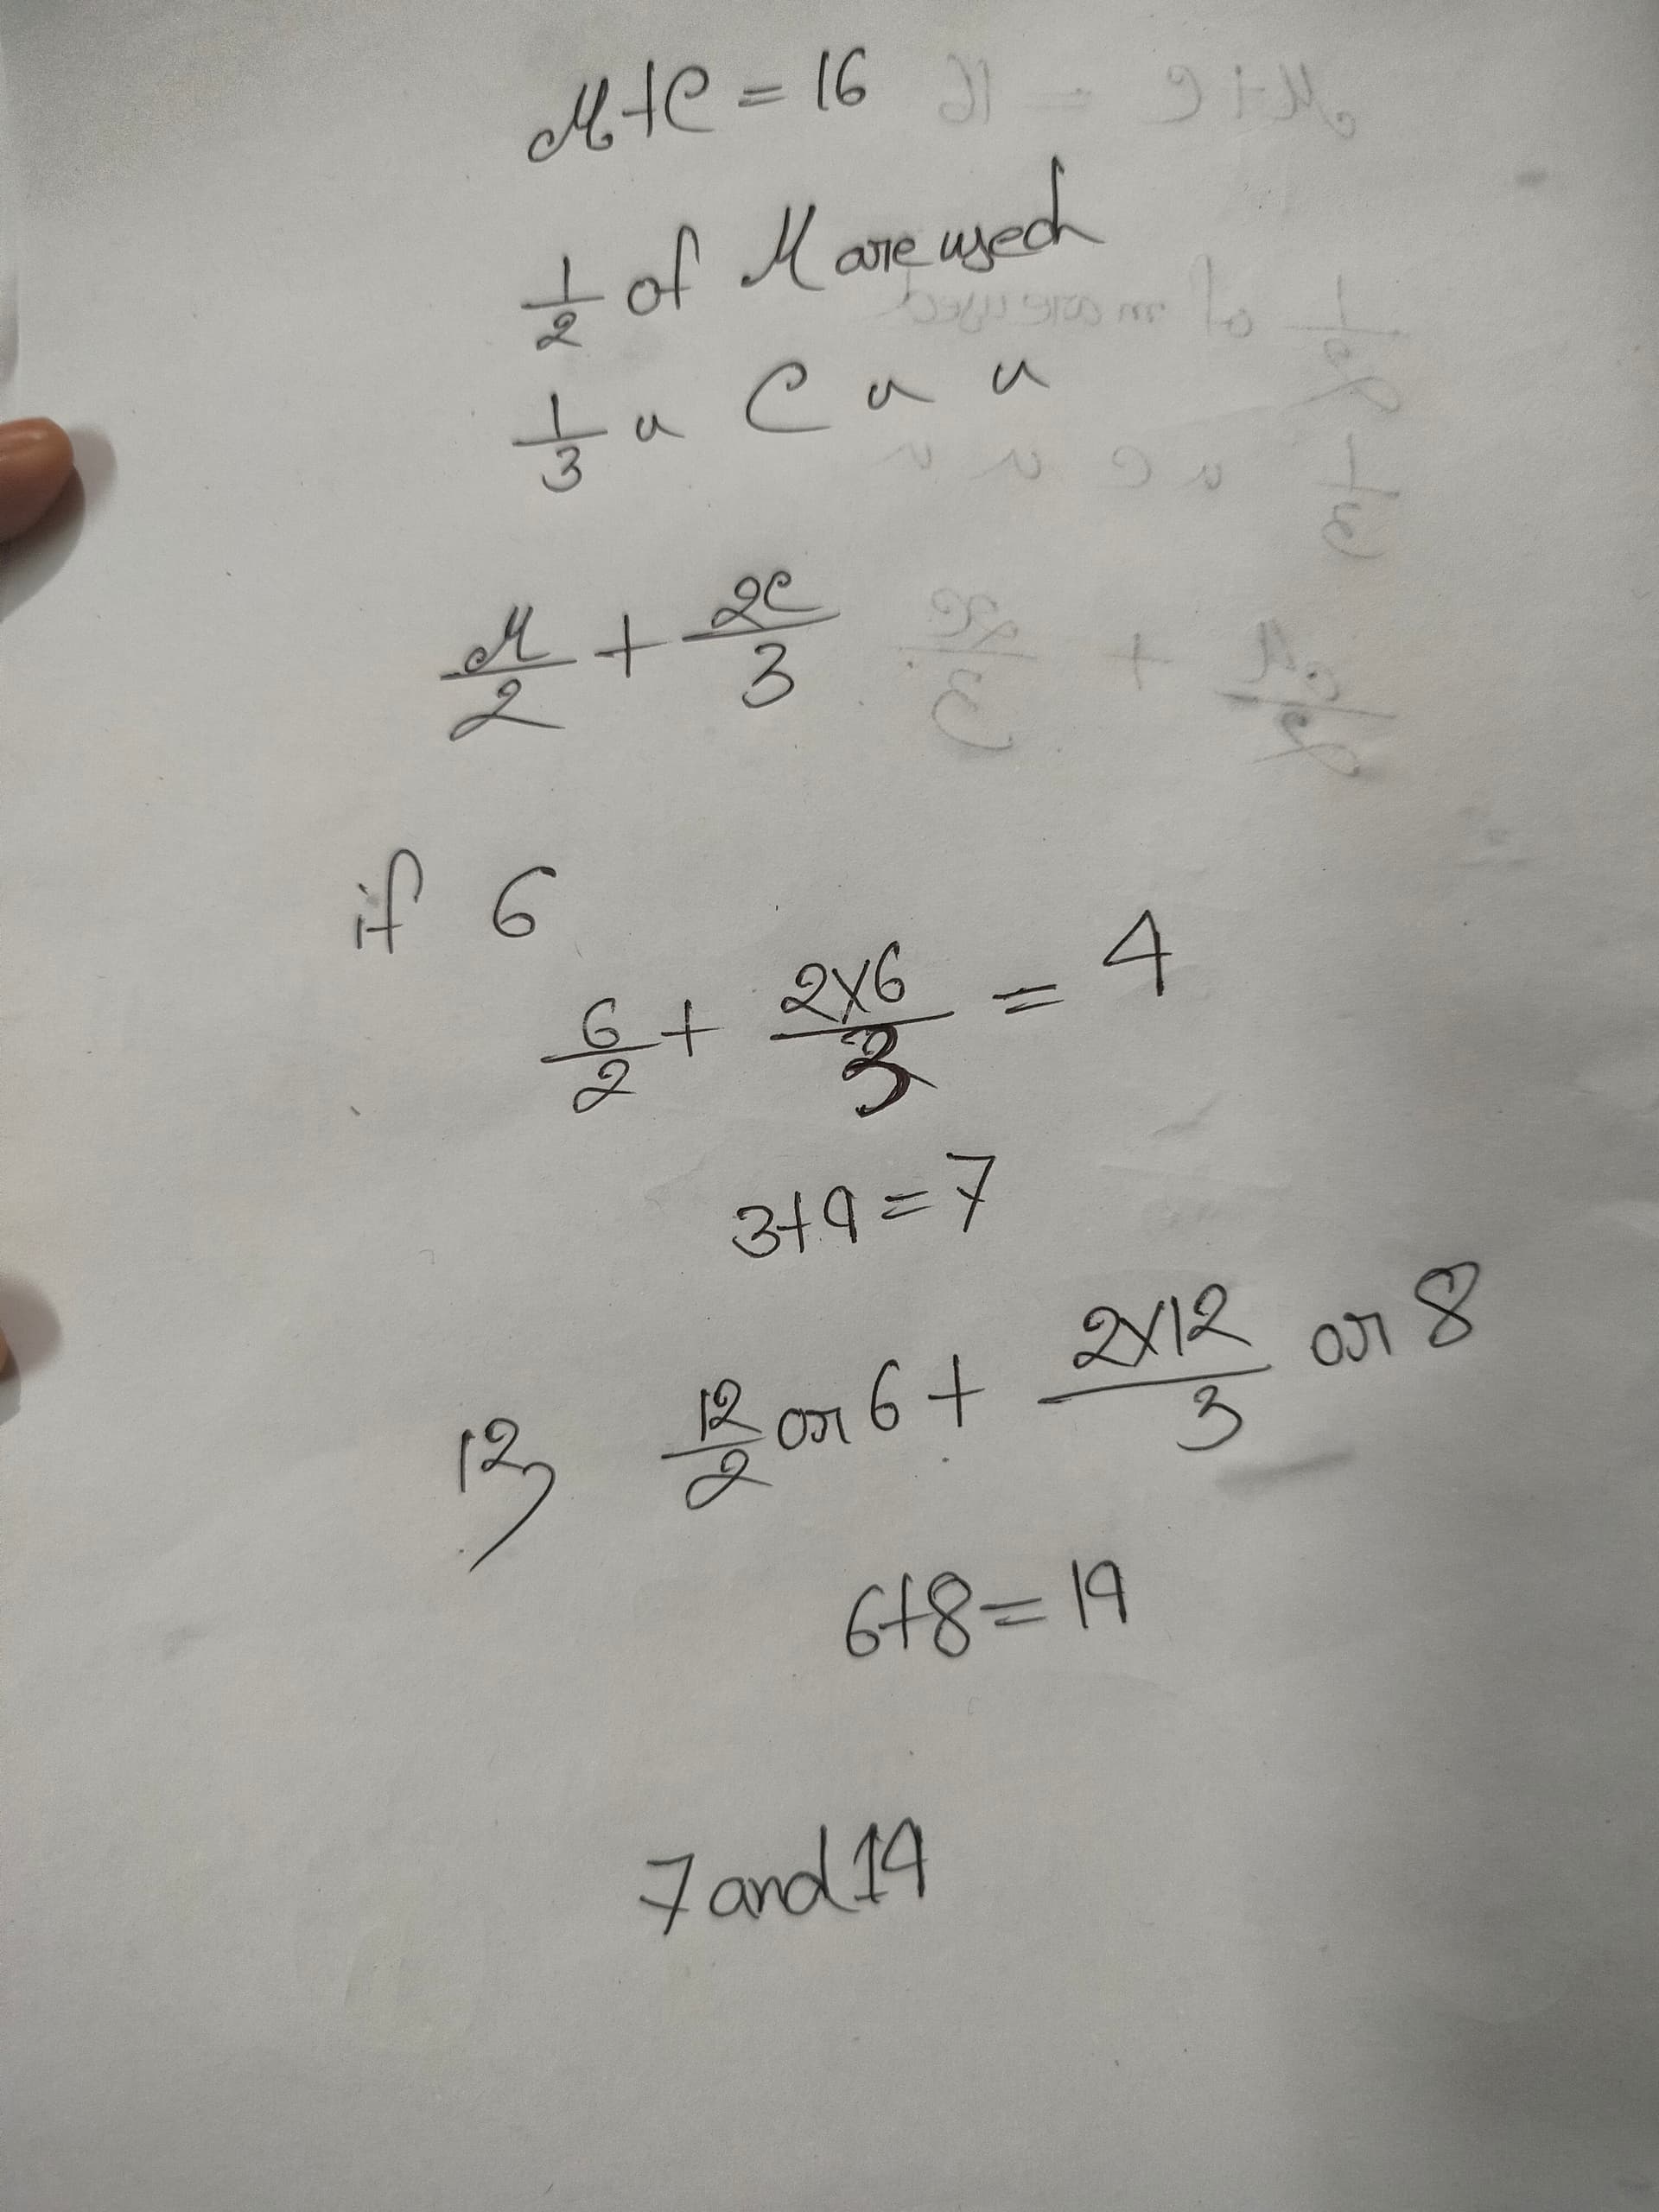 M+C = 16
1/2 of M are used
1/3 " C " "
M/2 + 2C/3
if 6
6/2 + 2×6/3 = 4
3+4=7
12, 12/2 or 6 + 2×12/3 or 8
6+8=14
7 and 14